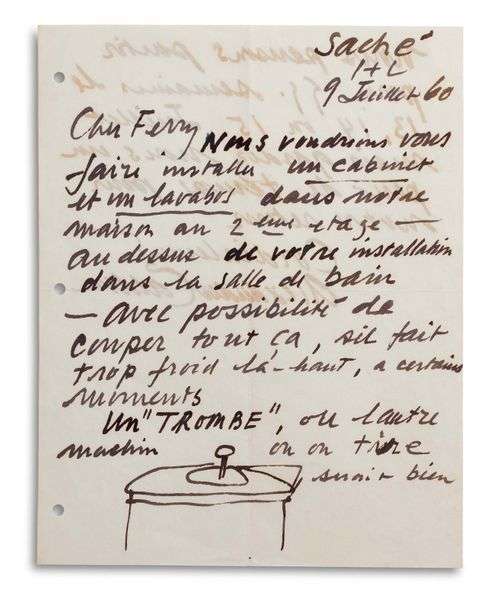 Saché
I+L
9 Juillet 60
Cher Ferry
Nous voudrions vous
faire installer un cabinet
et un lavabos dans notre
maison au 2 eme etage —
au dessus de votre installation
dans la salle de bain
— avec possibilité de
couper tout ça, sil fait
trop froid là-haut, a certains
moments
Un "TROMBE", ou l'autre
machin où on tire
, serait bien